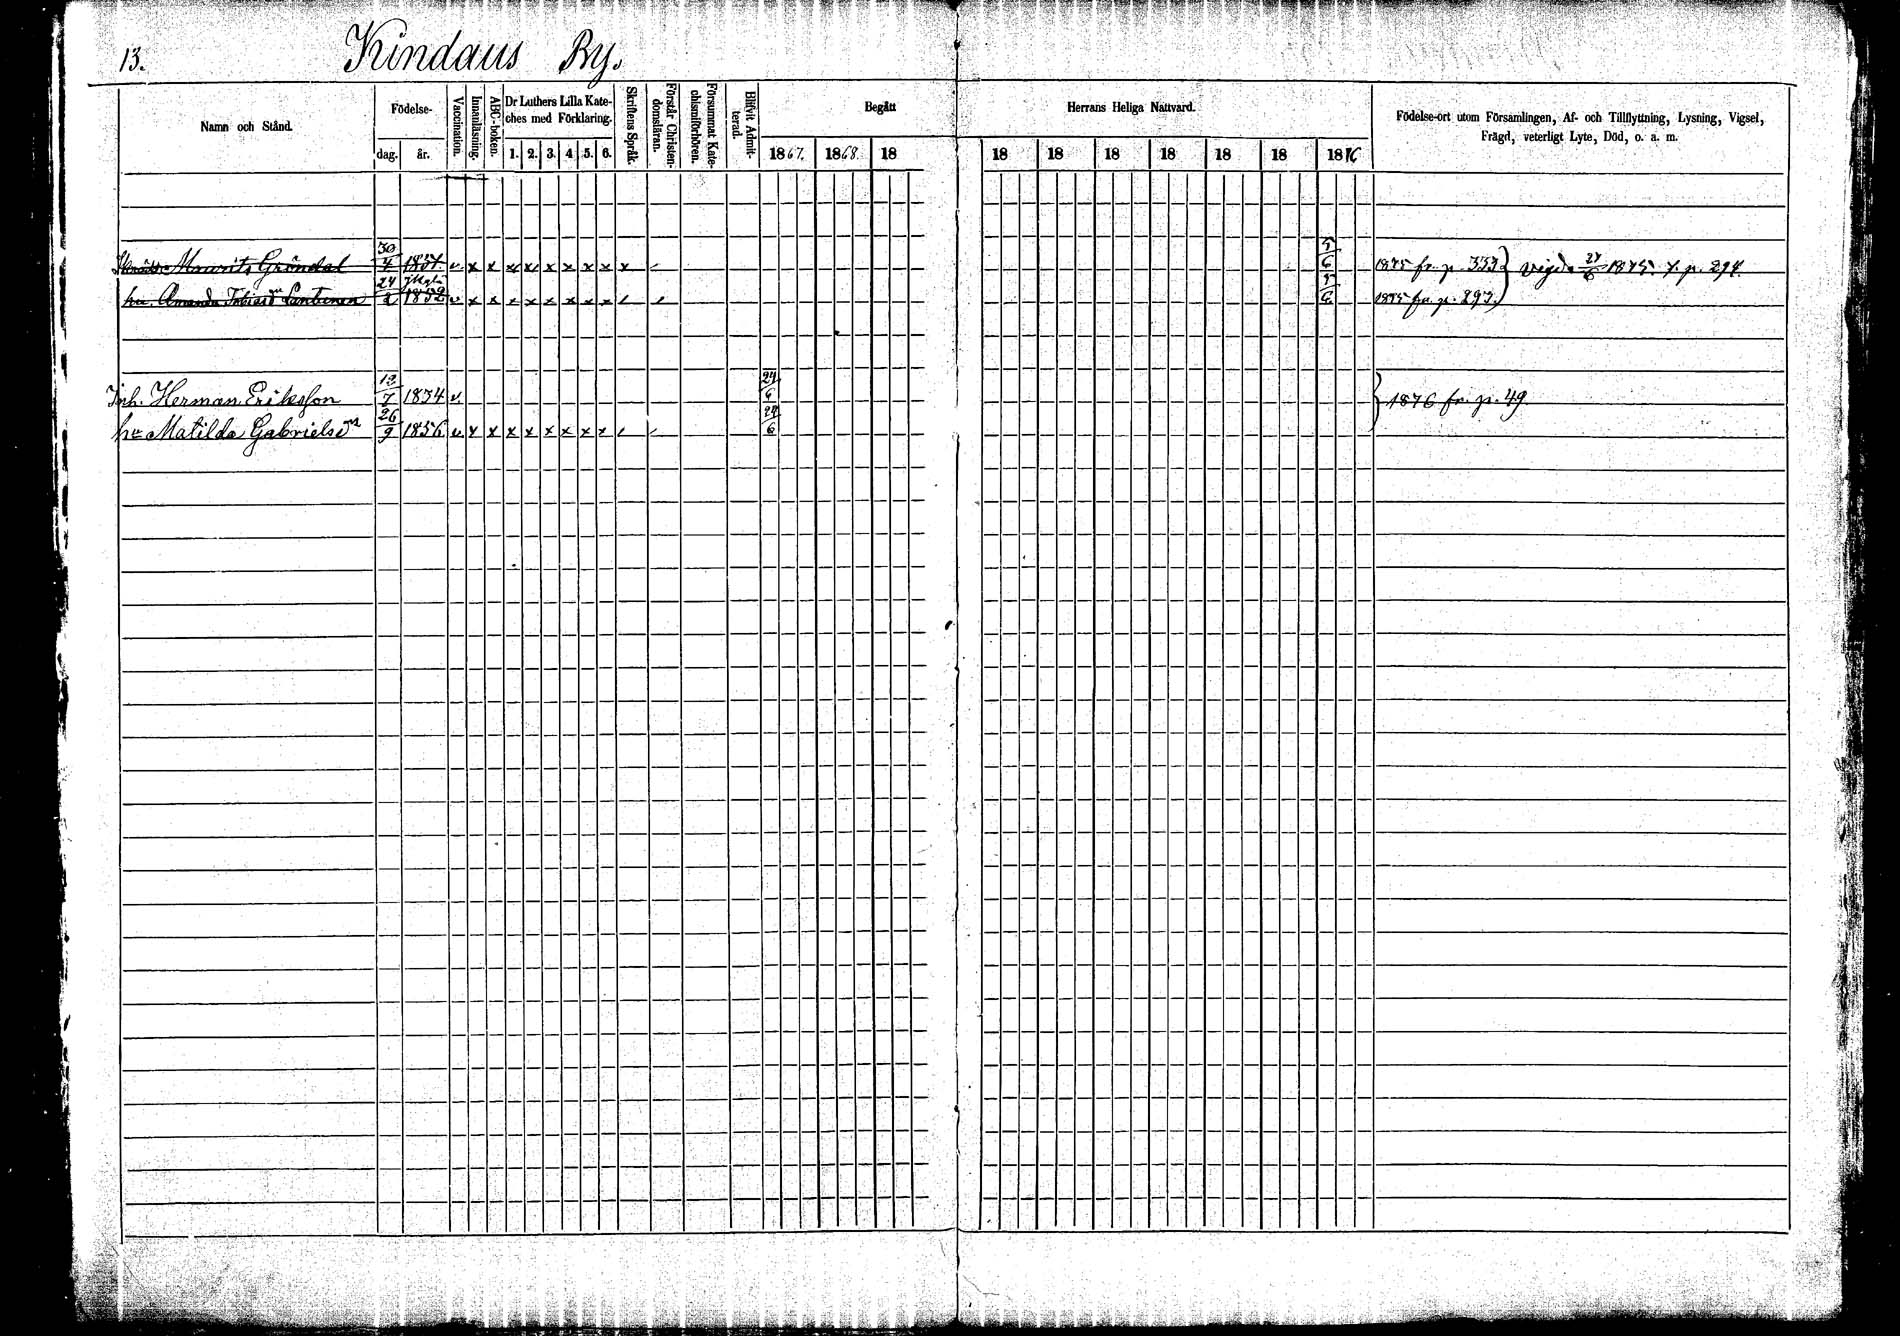 13. Kindaus By.
Namn och Stånd.
Födelse-
dag. år.
Vaccination.
Innanläsning.
ABC-boken.
Dr Luthers Lilla Kate-
ches med Förklaring.
1. 2. 3. 4. 5. 6.
Skriftens Språk.
Förstår Christen-
domsläran.
Försummat Kate-
chismiförhören.
Blifvit Admit-
terad.
Begått
1867. 1868. 18
Herrans Heliga Nattvard.
18 18 18 18 18 18 1876
Födelse-ort utom Församlingen, Af- och Tillflyttning, Lysning, Vigsel,
Frägd, veterligt Lyte, Död, o. a. m.
Maurits Gröndal 30/4 v x x x x x x x x x 5/6 1875 fr. p. 333 vigda 24/6 1875 p. 294.
hu. Amanda 24/2 1852 v x x x x x x x x 5/6 1875 fr. p. 293.
Inh. Herman Eriksson 12/7 1834 v 24/6 1876 fr. p. 49.
hu Matilda Gabrielsdn 26/9 1836 v x x x x x x x x 24/6